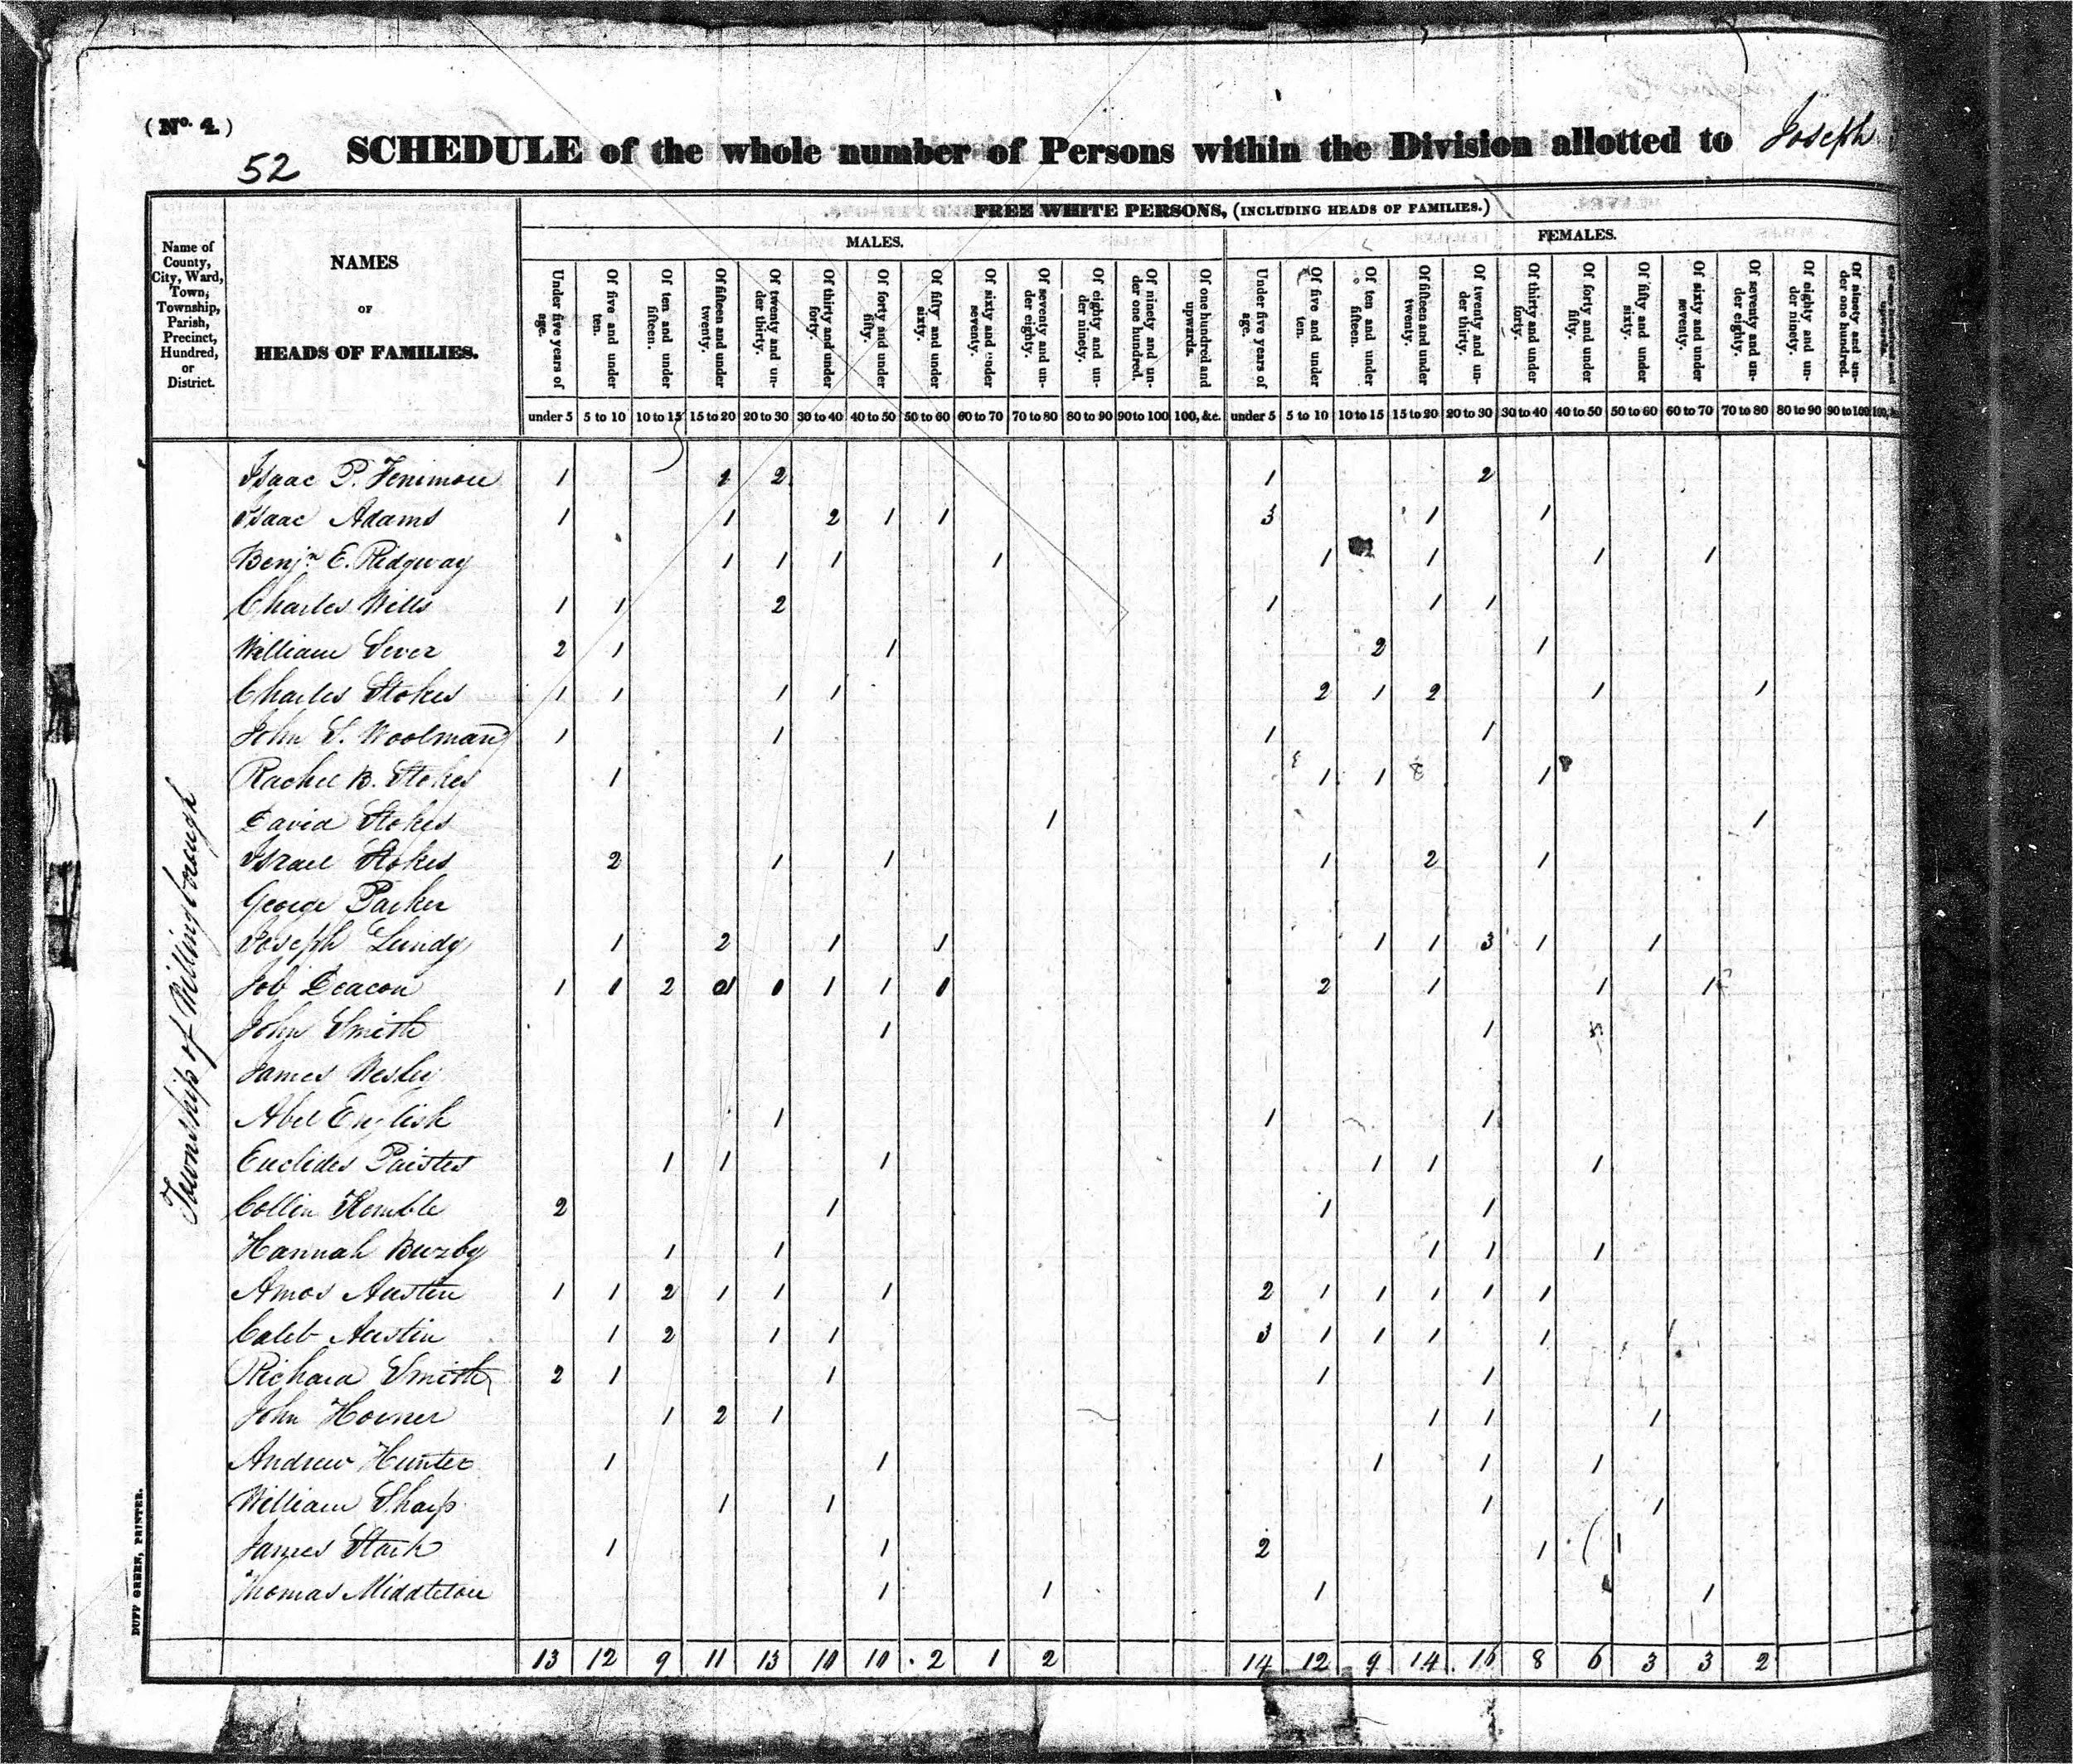 (No. 4.)
52
SCHEDULE of the whole number of Persons within the Division allotted to Joseph
Name of County, City, Ward, Town, Township, Parish, Precinct, Hundred, or District.
NAMES OF HEADS OF FAMILIES.
FREE WHITE PERSONS, (INCLUDING HEADS OF FAMILIES.)
MALES. FEMALES.
Under five years of age. Of five and under ten. Of ten and under fifteen. Of fifteen and under twenty. Of twenty and under thirty. Of thirty and under forty. Of forty and under fifty. Of fifty and under sixty. Of sixty and under seventy. Of seventy and under eighty. Of eighty and under ninety. Of ninety and under one hundred. Of one hundred and upwards. Under five years of age. Of five and under ten. Of ten and under fifteen. Of fifteen and under twenty. Of twenty and under thirty. Of thirty and under forty. Of forty and under fifty. Of fifty and under sixty. Of sixty and under seventy. Of seventy and under eighty. Of eighty and under ninety. Of ninety and under one hundred.
under 5 5 to 10 10 to 15 15 to 20 20 to 30 30 to 40 40 to 50 50 to 60 60 to 70 70 to 80 80 to 90 90 to 100 100, &c. under 5 5 to 10 10 to 15 15 to 20 20 to 30 30 to 40 40 to 50 50 to 60 60 to 70 70 to 80 80 to 90 90 to 100 100, &c.
Township of Willingborough
Isaac P. Fenimore 1 2 2 1 2
Isaac Adams 1 1 2 1 1 3 1 1
Benjn E. Ridgway 1 1 1 1 1 1 1 1
Charles Wills 1 1 2 1 1 1
William Sever 2 1 1 2 1
Charles Stokes 1 1 1 1 2 1 2 1 1
John S. Woolman 1 1 1 1
Rachel B. Stokes 1 1 1 1
David Stokes 1 1
Israel Stokes 2 1 1 1 2 1
George Parker
Joseph Lundy 1 2 1 1 1 1 3 1 1
Job Deacon 1 1 2 1 1 1 2 1 1 1
John Smith 1 1
James Wesley
Abel English 1 1 1
Euclides Paistes 1 1 1 1 1 1
Collin Kemble 2 1 1 1
Hannah Buzby 1 1 1 1 1
Amos Austin 1 1 2 1 1 1 2 1 1 1 1 1
Caleb Austin 1 2 1 1 3 1 1 1 1 1
Richard Smith 2 1 1 1 1
John Horner 1 2 1 1 1 1
Andrew Hunter 1 1 1 1 1
William Sharp 1 1 1 1
James Stark 1 1 2 1 1
Thomas Middleton 1 1 1 1
13 12 9 11 13 10 10 2 1 2 14 12 9 14 16 8 6 3 3 2
DUFF GREEN, PRINTER.